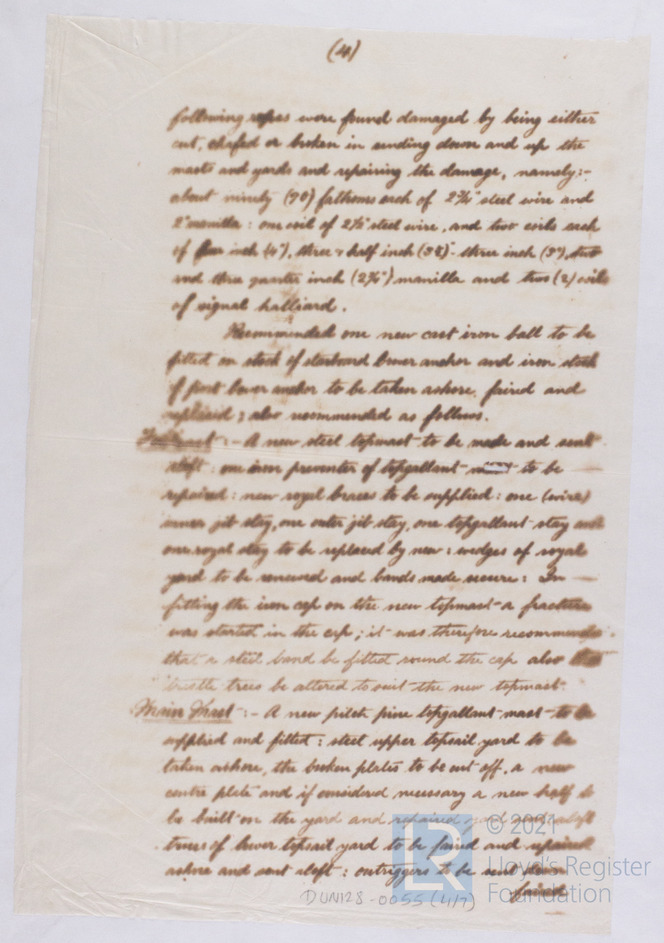 (4)
following ropes were found damaged by being either
cut, chafed or broken in sending down and up the
masts and yards and repairing the damage, namely:-
about ninety (90) fathoms each of 2¾" steel wire and
2" manilla: one coil of 2½" steel wire, and two coils each
of four inch (4"), three & half inch (3½)" three inch (3"), two
and three quarter inch (2¾") manilla and two (2) coils
of signal halliard.
Recommended one new cast iron ball to be
fitted on stock of starboard bower anchor and iron stock
of port bower anchor to be taken ashore, faired and
replaced; also recommended as follows.
:- A new steel topmast to be made and sent
aloft: one iron preventer of topgallant mast to be
repaired: new royal braces to be supplied: one (wire)
inner jib stay, one outer jib stay, one topgallant stay and
one royal stay to be replaced by new: wedges of royal
yard to be renewed and bands made secure: In
fitting the iron cap on the new topmast a fracture
was started in the cap; it was therefore recommended
that a steel band be fitted round the cap also
trustle trees be altered to suit the new topmast.
Main Mast:- A new pitch pine topgallant mast to be
supplied and fitted: steel upper topsail yard to be
taken ashore, the broken plates to be cut off, a new
centre plate and if considered necessary a new half to
be built on the yard and repaired yard sent aloft
truss of lower topsail yard to be faired and repaired
ashore and sent aloft: outriggers to be sent down
faired
DUN128-0055 (4/7)
© 2021
Lloyd's Register
Foundation
LR